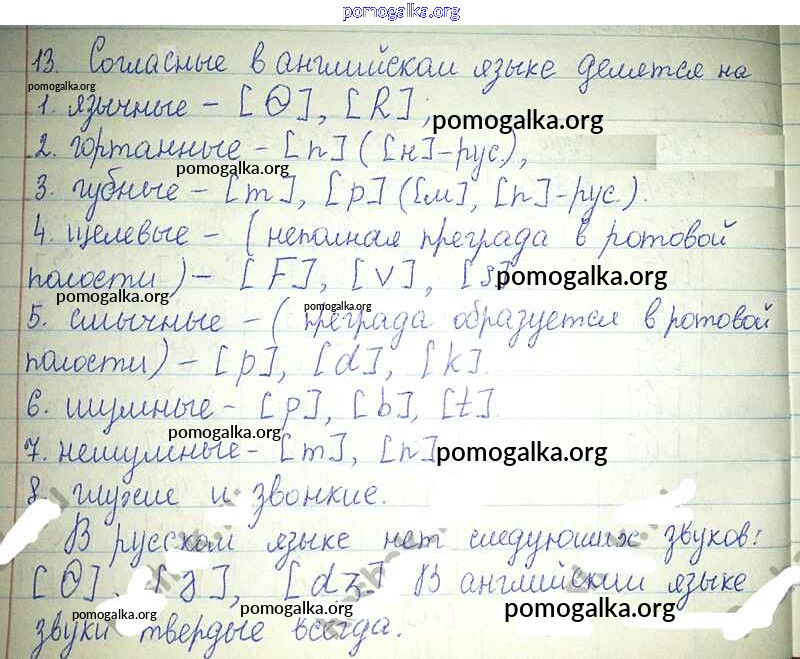 pomogalka.org
13. Согласные в английском языке делятся на
pomogalka.org
1. язычные – [Θ], [R],
pomogalka.org
2. гортанные – [n] ([н]-рус.),
pomogalka.org
3. губные – [m], [p] ([м], [п]-рус.).
4. щелевые – (неполная преграда в ротовой
полости) – [F], [v], [s]
pomogalka.org
pomogalka.org
pomogalka.org
5. смычные – (преграда образуется в ротовой
полости) – [p], [d], [k].
6. шумные – [p], [b], [t].
pomogalka.org
7. нешумные – [m], [n]
pomogalka.org
8. глухие и звонкие.
В русском языке нет следующих звуков:
[Θ], [з], [dз] В английский языке
pomogalka.org
pomogalka.org
pomogalka.org
звуки твердые всегда.